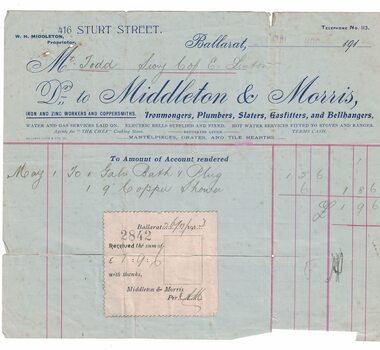 416 STURT STREET.
TELEPHONE No. 113.
W. H. MIDDLETON,
Proprietor.
Ballarat, 191
Mr Todd
Dr. to Middleton & Morris,
IRON AND ZINC WORKERS AND COPPERSMITHS. Ironmongers, Plumbers, Slaters, Gasfitters, and Bellhangers.
WATER AND GAS SERVICES LAID ON. ELECTRIC BELLS SUPPLIED AND FIXED. HOT WATER SERVICES FITTED TO STOVES AND RANGES.
Agents for "THE CHEF" Cooking Stove. TERMS CASH.
MANTELPIECES, GRATES, AND TILE HEARTHS.
To Amount of Account rendered
May 1 To 1 Galv Bath & Plug 1 3 6
1 9" Copper Shower 6 1 9 6
£ 1 9 6
Ballarat
2842
Received the sum of
£ 1 : 9 : 6
with thanks,
Middleton & Morris
Per